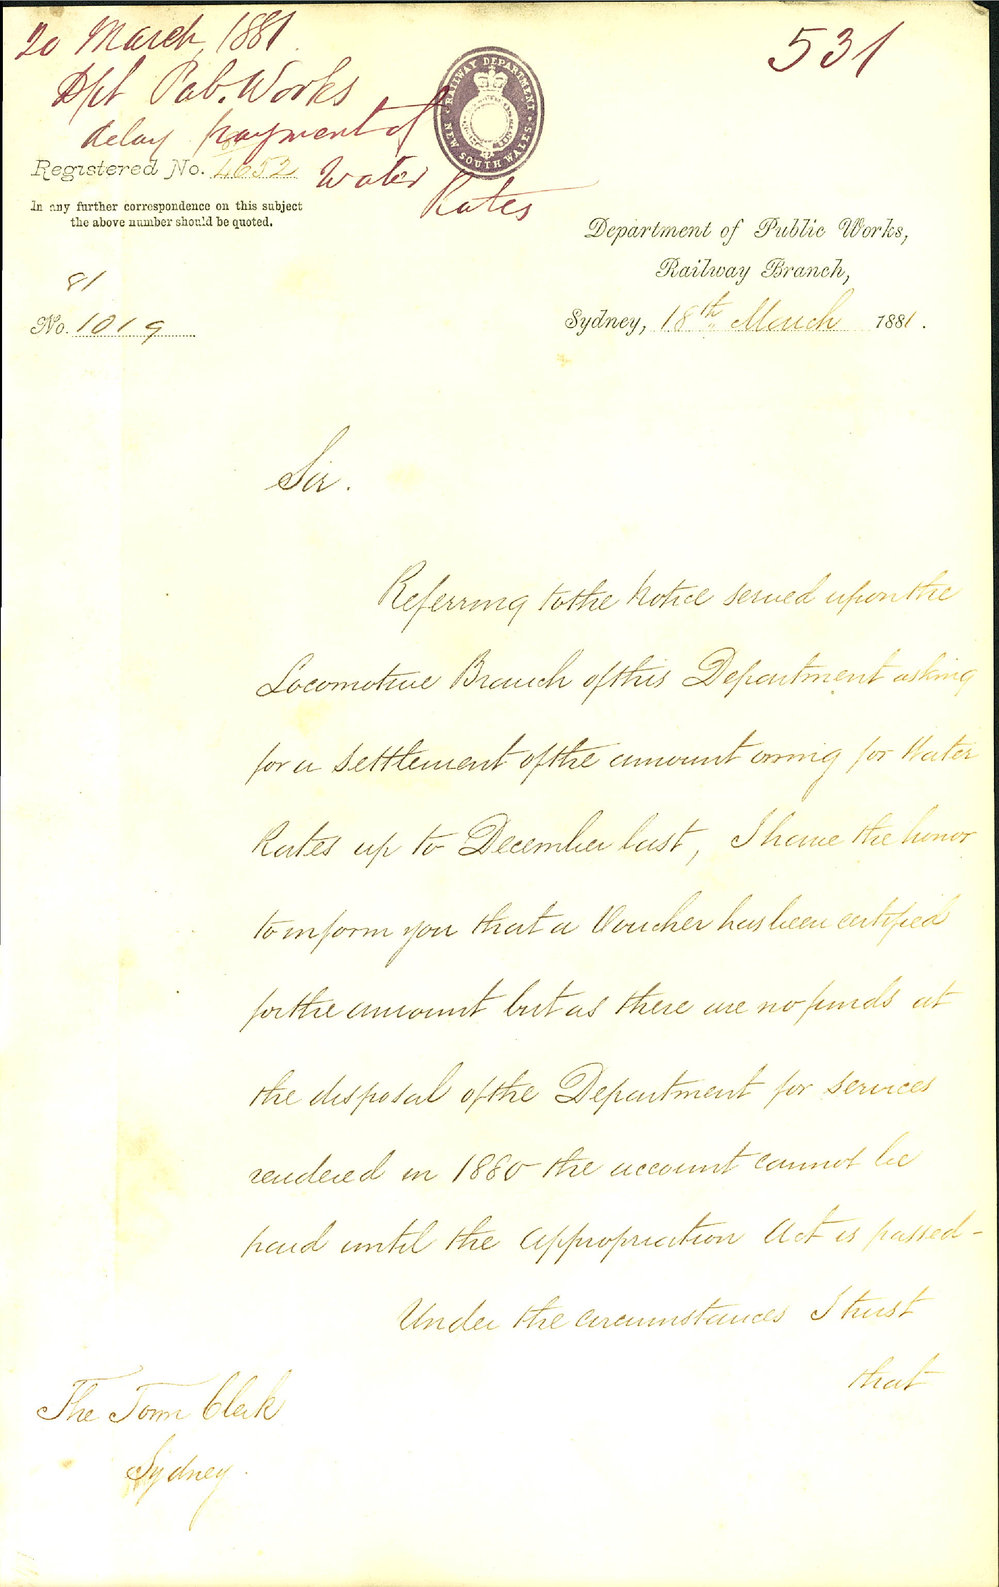 20 March, 1881
Dpt Pub. Works
delay payment of
Water
Rates
531
RAILWAY DEPARTMENT
NEW SOUTH WALES
Registered No. 4652
In any further correspondence on this subject
the above number should be quoted.
81
No. 1019
Department of Public Works,
Railway Branch,
Sydney, 18th March 1881.
Sir.
Referring to the Notice served upon the
Locomotive Branch of this Department asking
for a settlement of the amount owing for Water
Rates up to December last, I have the honor
to inform you that a Voucher has been certified
for the amount but as there are no funds at
the disposal of the Department for services
rendered in 1880 the account cannot be
paid until the Appropriation Act is passed-
Under the circumstances I trust
that
The Town Clerk
Sydney.